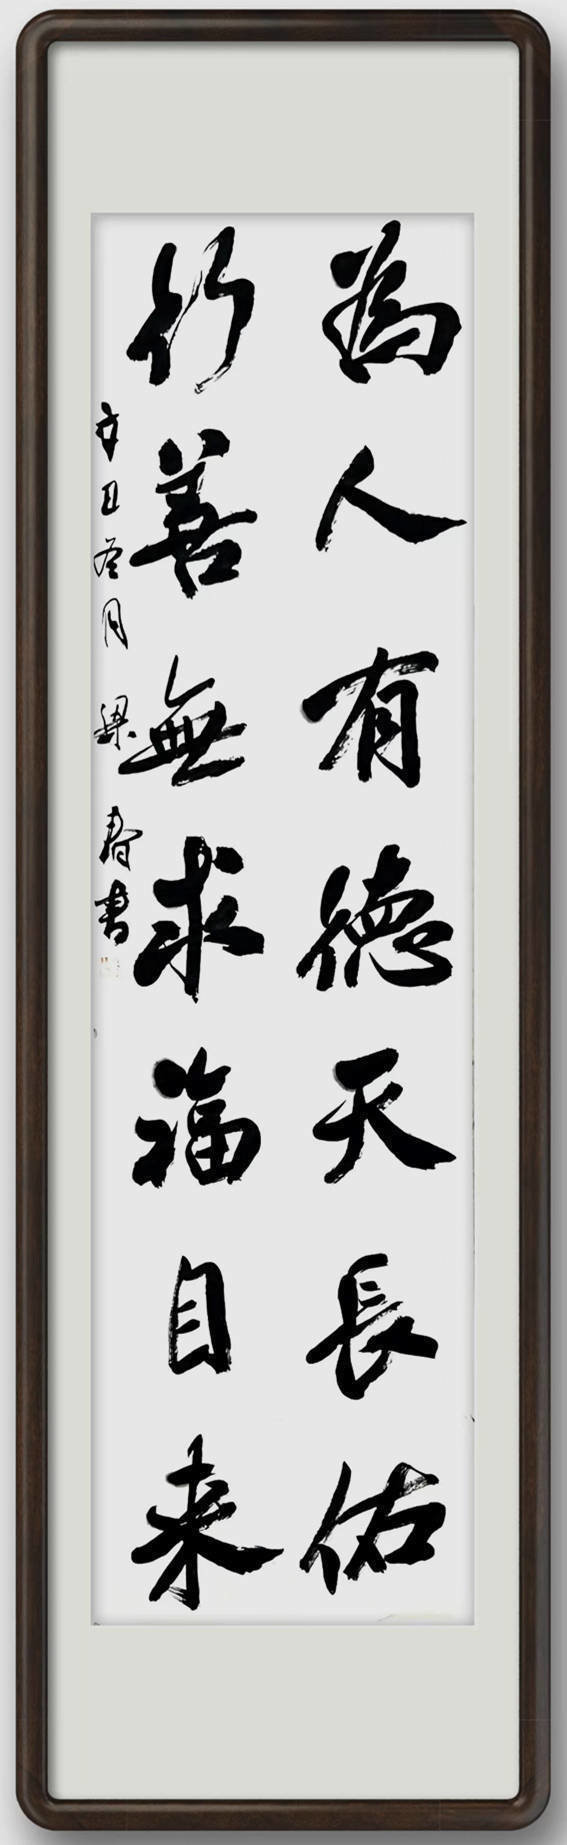 為人有德天長佑
行善無求福自来
辛丑冬月 梁春書